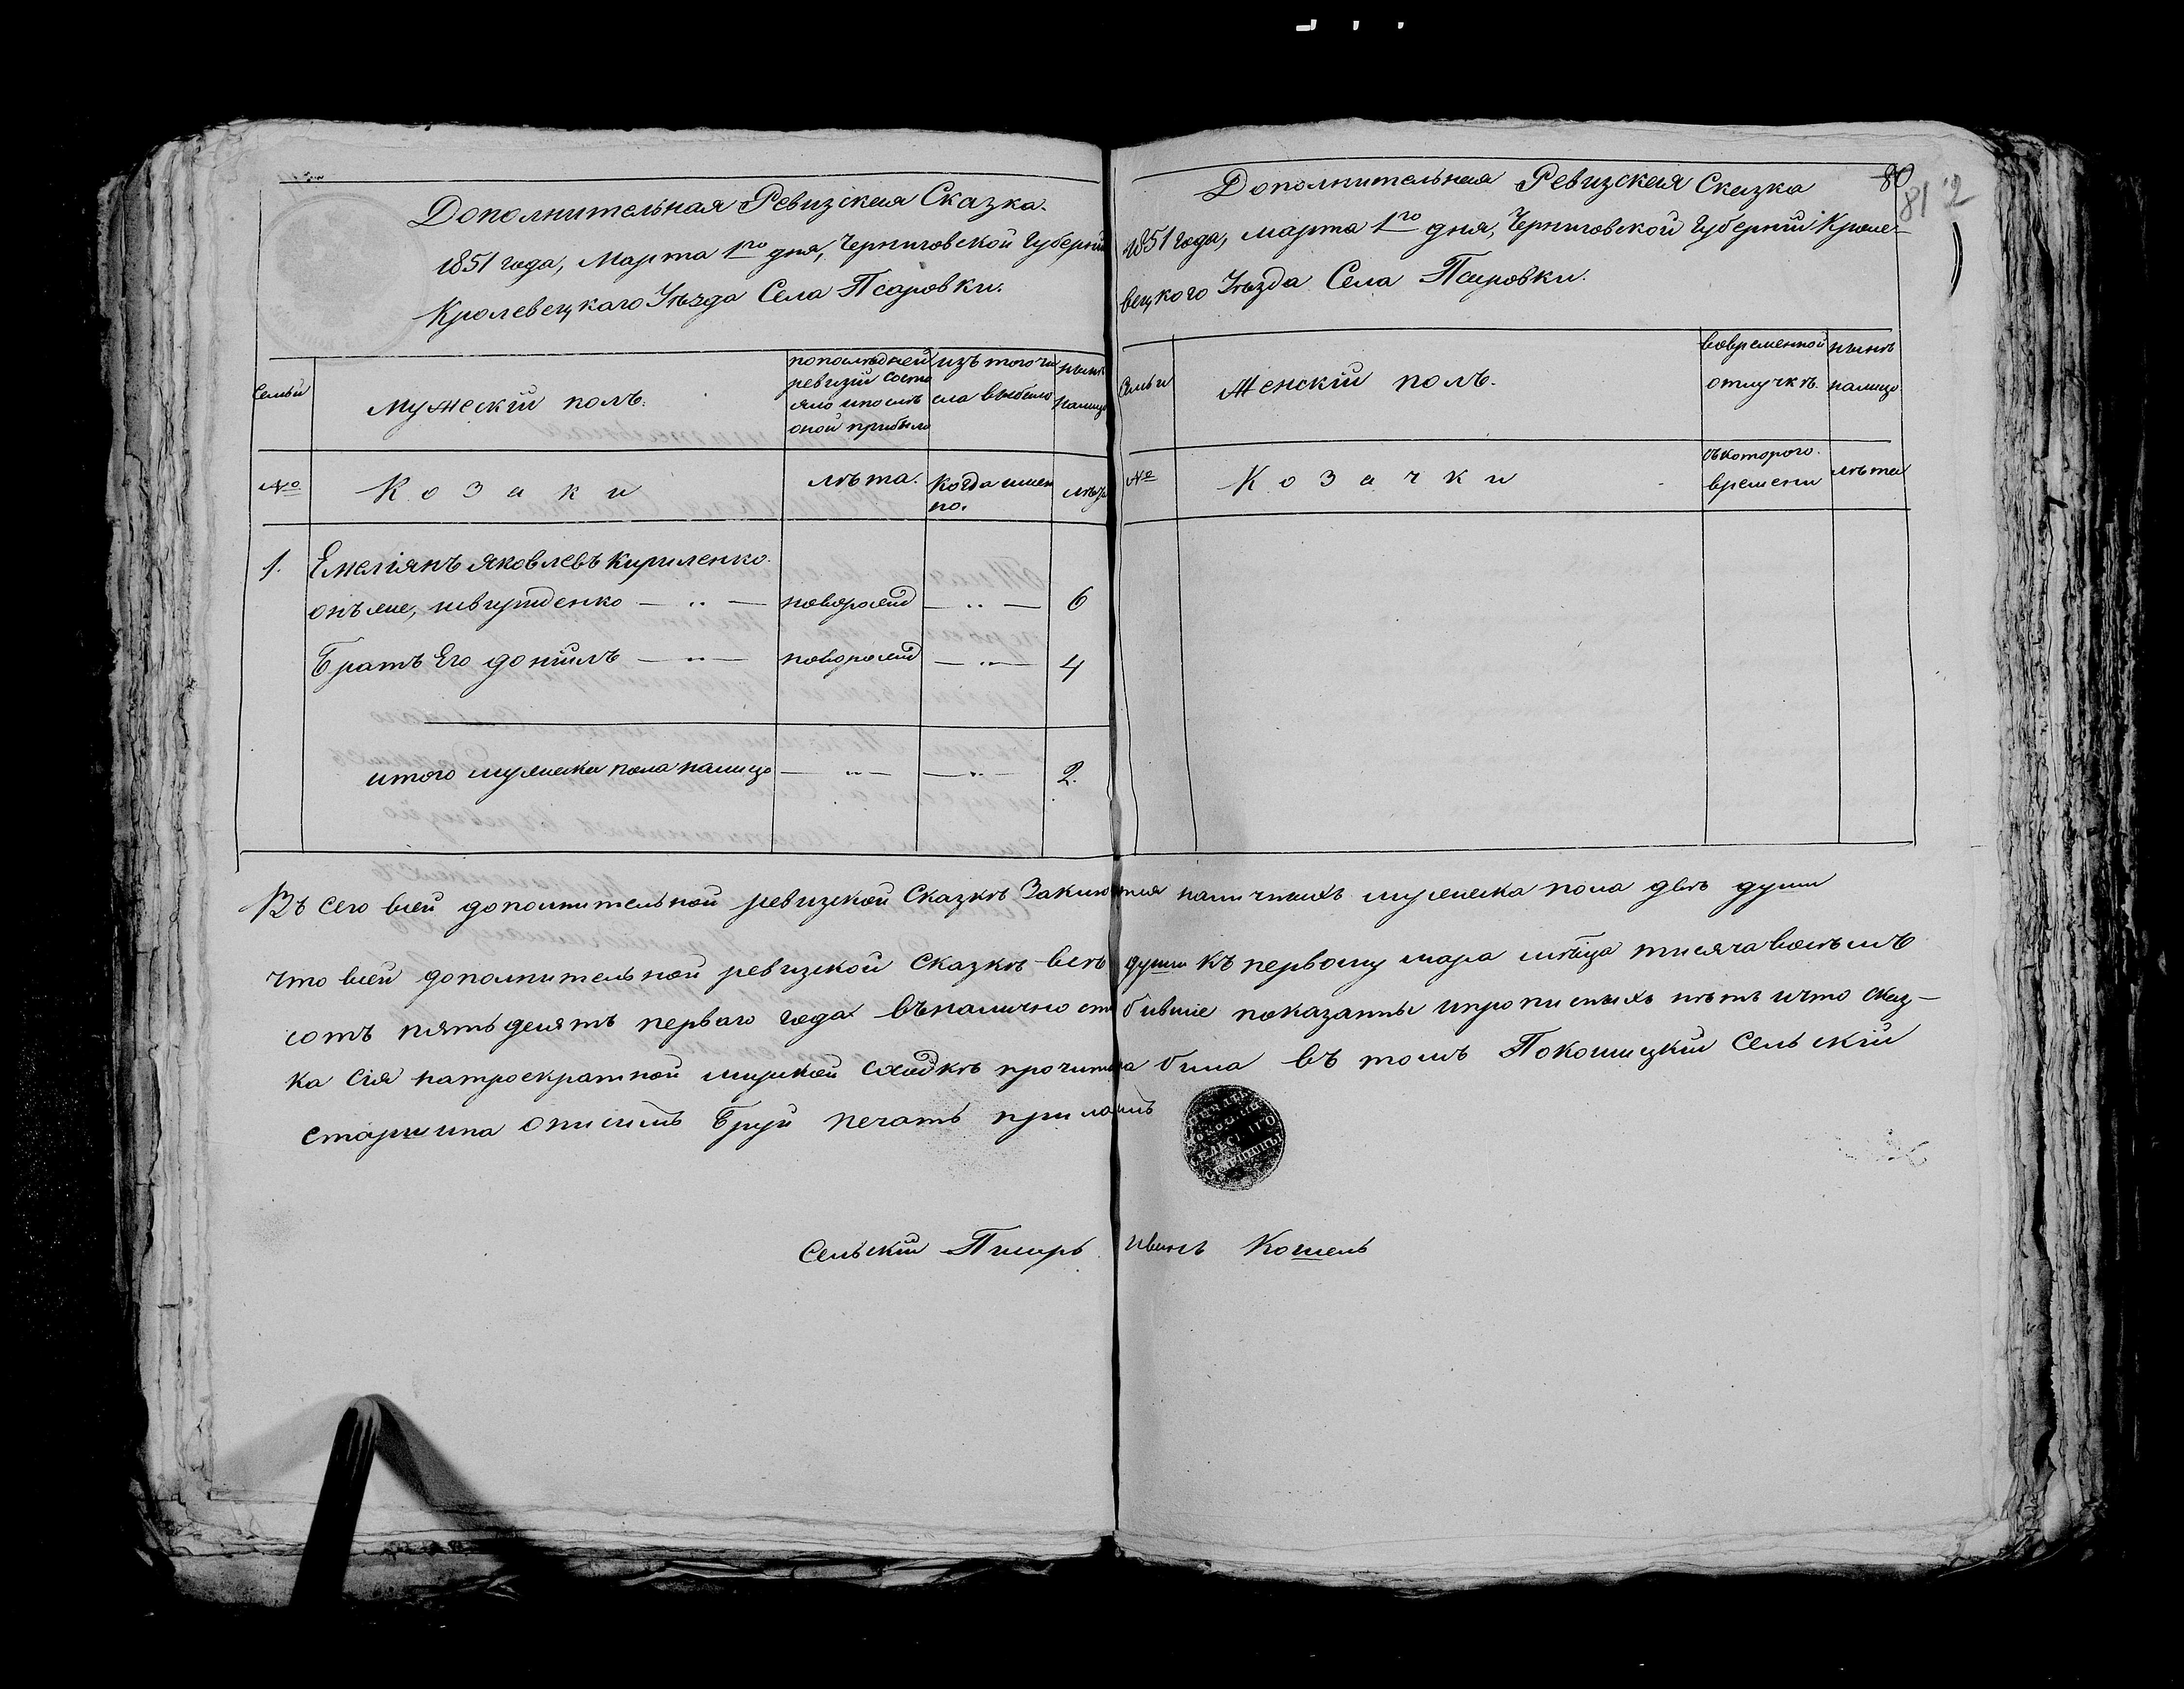 Дополнительная Ревизская Сказка.
1851 года, Марта 1го дня, Черниговской Губерніи
Кролевецкаго Уѣзда Села Псаровки.
Семьи
Мужескій полъ.
по послѣдней
ревизіи состо
яло и послѣ
оной прибыло
изъ того чи
сла выбыло
нынѣ
налицо
№
Козаки
лѣта.
когда имен
но.
лѣта
1.
Емеліянъ Яковлевъ Кириленко
онъ же,
новорожд
6
Братъ Его Данiилъ
новорожд
4
итого мужеска пола налицо
2.
Дополнительная Ревизская Сказка
1851 года, марта 1го дня, Черниговской Губерніи Кроле-
вецкого Уѣзда Села Псаровки.
80
81
2
Семьи
Женскій полъ.
вовременной
отлучкѣ
нынѣ
налицо
№
Козачки
съкоторого
времени
лѣта
Въ сего вsей дополнительной ревизской Сказкѣ Заключается наличныхъ мужеска пола двѣ души
что всей дополнительной ревизской Сказкѣ всѣ души къ первому мара мѣсца тисяча восѣмъ
сотъ пятьдесятъ перваго года въналичности бившіе показанны ипрописныхъ нѣтъ ичто сказ-
ка Сія натроекратной мирской сходкѣ прочитана била въ томъ Покошицкій Сельскій
старшина Онисимъ Бруй печать приложилъ
Сельскій Писарь Иванъ Кошель